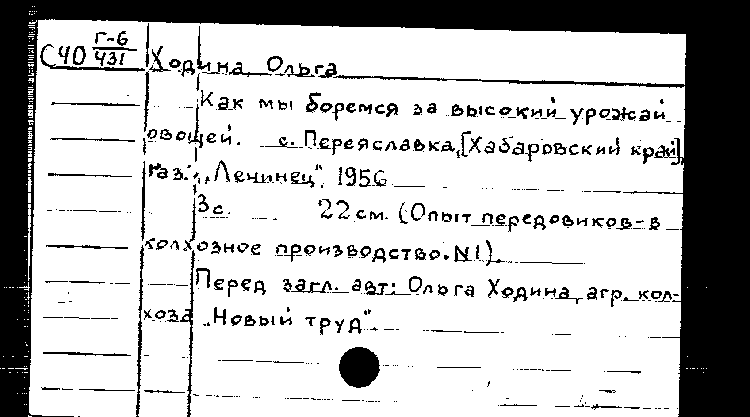 С40 Г-6/431 Ходина, Ольга
Как мы боремся за высокий урожай
овощей. с. Переяславка, [Хабаровский край],
газ. „Ленинец“, 1956
3с. 22 см. (Опыт передовиков - в
колхозное производство. N1).
Перед загл. авт: Ольга Ходина, агр. кол-
хоза „Новый труд“.